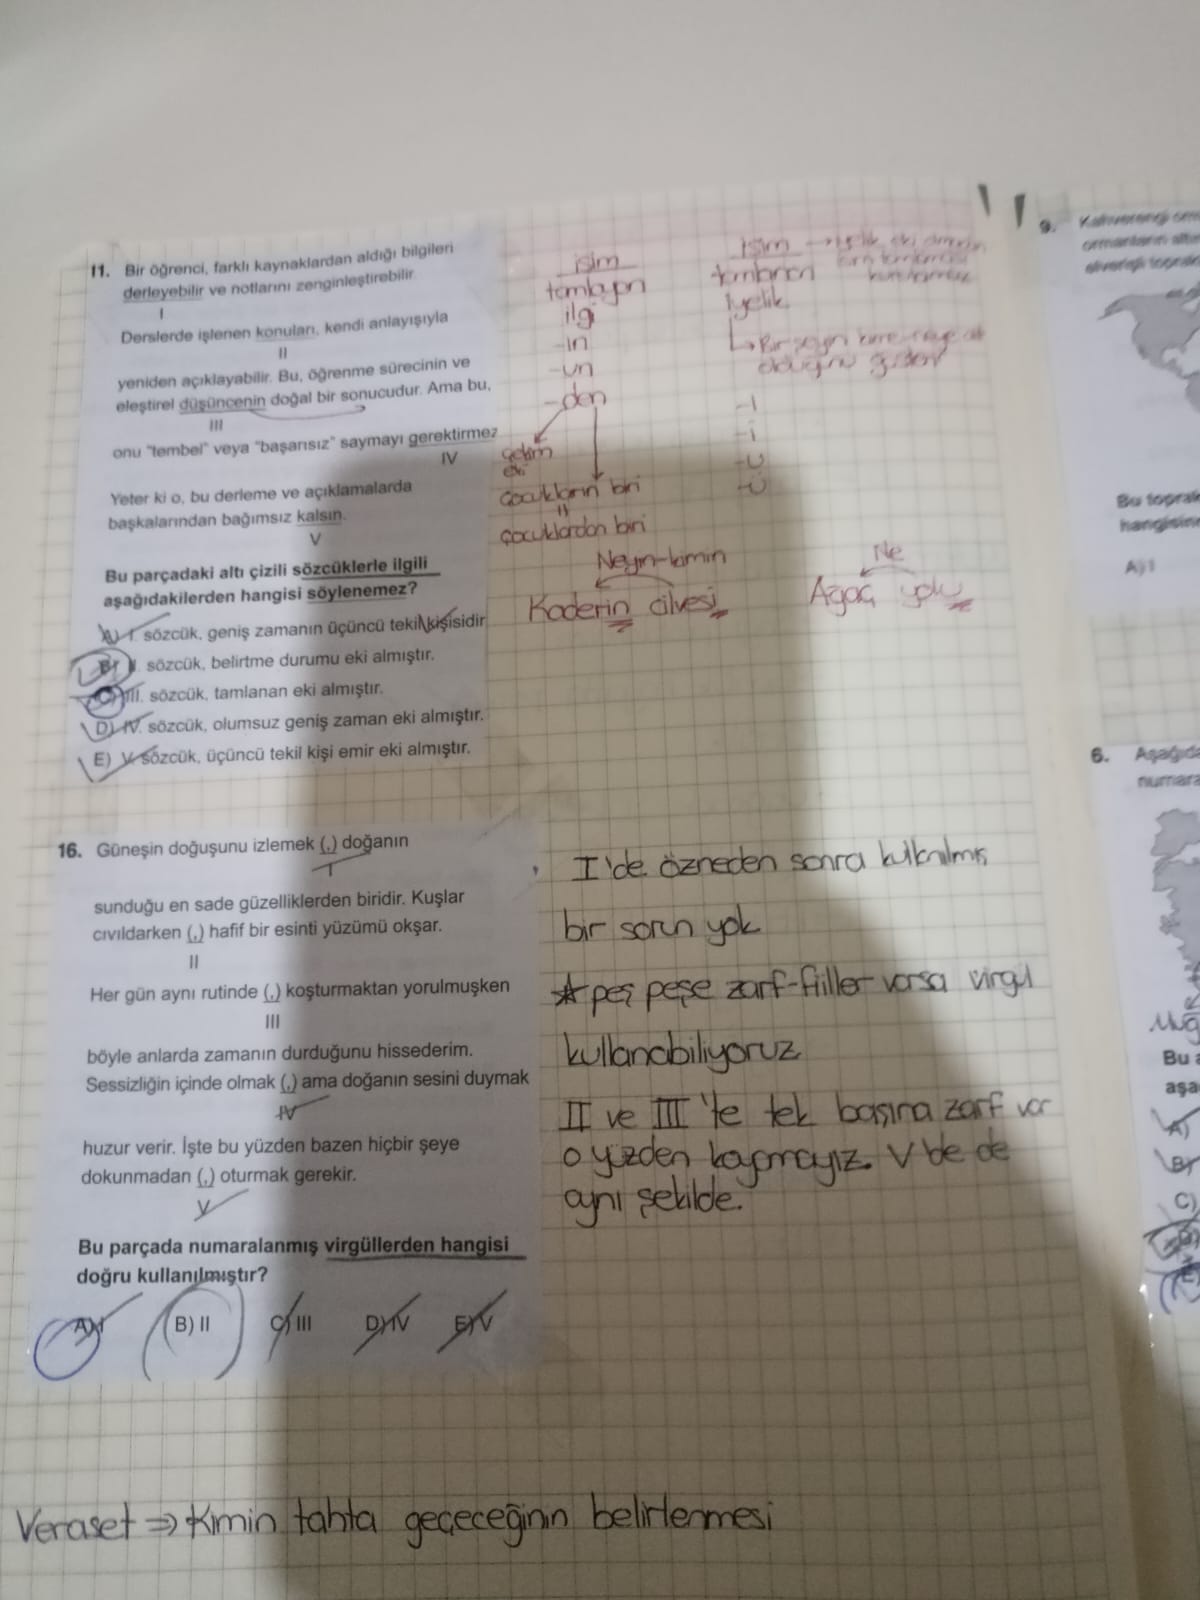 11. Bir öğrenci, farklı kaynaklardan aldığı bilgileri
derleyebilir ve notlarını zenginleştirebilir.
I
Derslerde işlenen konuları, kendi anlayışıyla
II
yeniden açıklayabilir. Bu, öğrenme sürecinin ve
eleştirel düşüncenin doğal bir sonucudur. Ama bu,
III
onu "tembel" veya "başarısız" saymayı gerektirmez
IV
Yeter ki o, bu derleme ve açıklamalarda
başkalarından bağımsız kalsın.
V
Bu parçadaki altı çizili sözcüklerle ilgili
aşağıdakilerden hangisi söylenemez?
A) I. sözcük, geniş zamanın üçüncü tekil kişisidir
B) II. sözcük, belirtme durumu eki almıştır.
C) III. sözcük, tamlanan eki almıştır.
D) IV. sözcük, olumsuz geniş zaman eki almıştır.
E) V. sözcük, üçüncü tekil kişi emir eki almıştır.
isim
tamlayan
ilgi
-in
-un
-den
çekim
eki
çocukların biri
çocuklardan biri
isim
tamlanan
iyelik
Bir şeyin
olduğunu
-ı
-i
-u
-ü
Neyin-kimin
Kaderin cilvesi
Ne
Ağaç yolu
16. Güneşin doğuşunu izlemek (,) doğanın
I
sunduğu en sade güzelliklerden biridir. Kuşlar
cıvıldarken (,) hafif bir esinti yüzümü okşar.
II
Her gün aynı rutinde (,) koşturmaktan yorulmuşken
III
böyle anlarda zamanın durduğunu hissederim.
Sessizliğin içinde olmak (,) ama doğanın sesini duymak
IV
huzur verir. İşte bu yüzden bazen hiçbir şeye
dokunmadan (,) oturmak gerekir.
V
Bu parçada numaralanmış virgüllerden hangisi
doğru kullanılmıştır?
A) I B) II C) III D) IV E) V
I'de özneden sonra kullanılmış
bir sorun yok
peş peşe zarf-fiiller varsa virgül
kullanabiliyoruz
II ve III'te tek başına zarf var
o yüzden koymayız. V'de de
aynı şekilde.
Veraset ⇒ Kimin tahta geçeceğinin belirlenmesi
9. Kahverengi
ormanların
elverişli
Bu
A) I
6.
Bu
A)
B)
C)